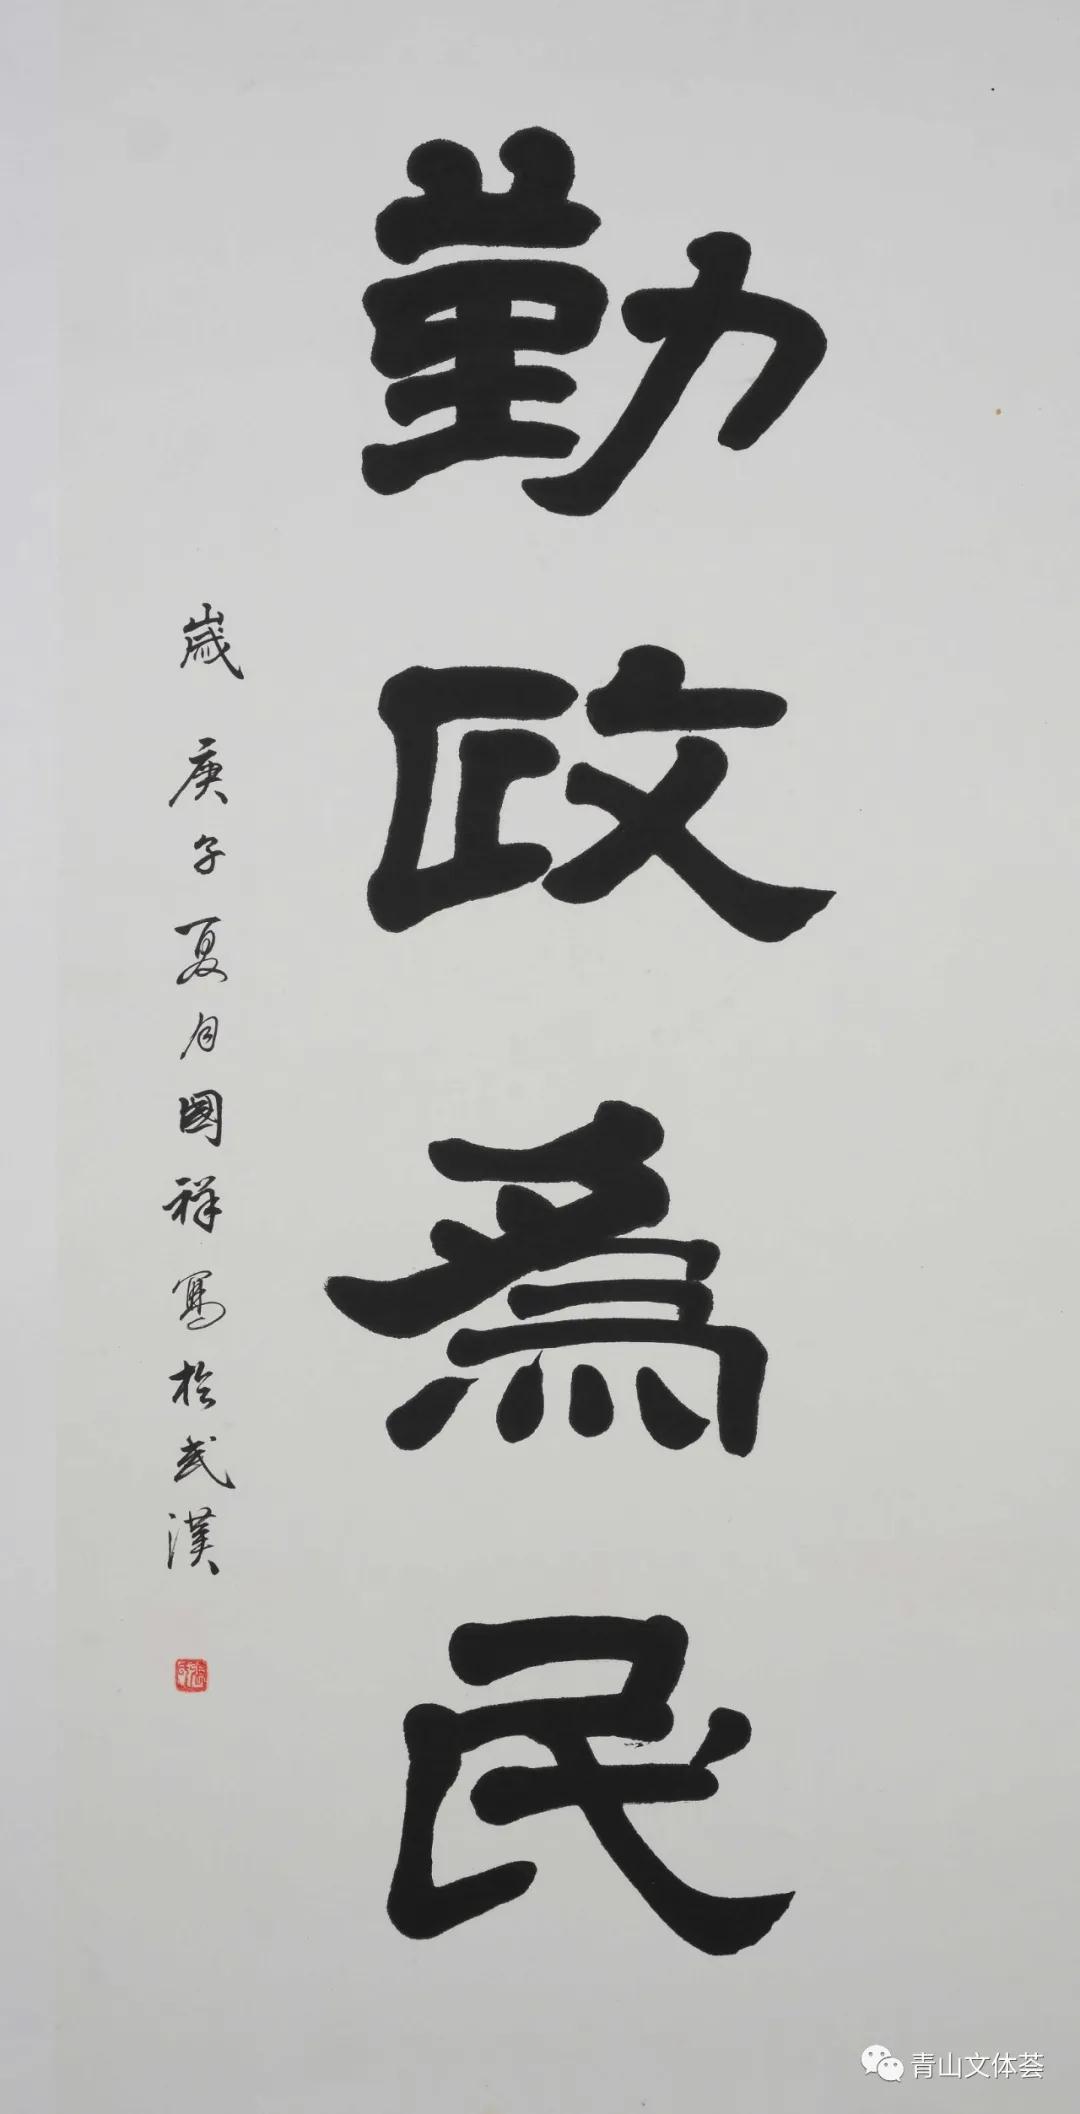 勤政為民
歲庚子夏月國祥寫於武漢
青山文体荟